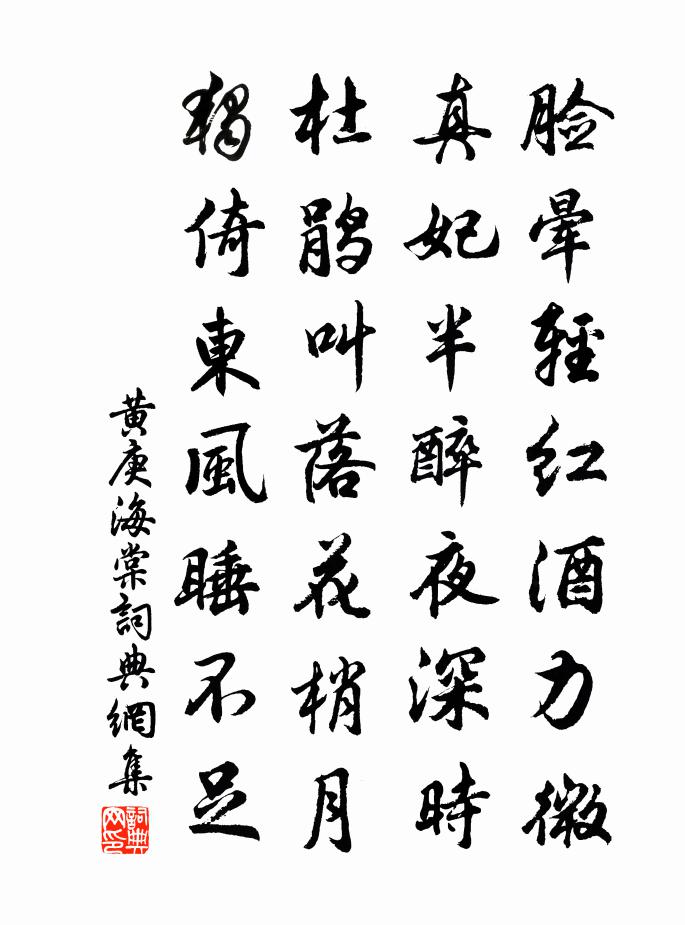 脸晕轻红酒力微
真妃半醉夜深时
杜鹃叫落花梢月
獨倚東風睡不足
黄庚海棠詞典網集
詞典网印